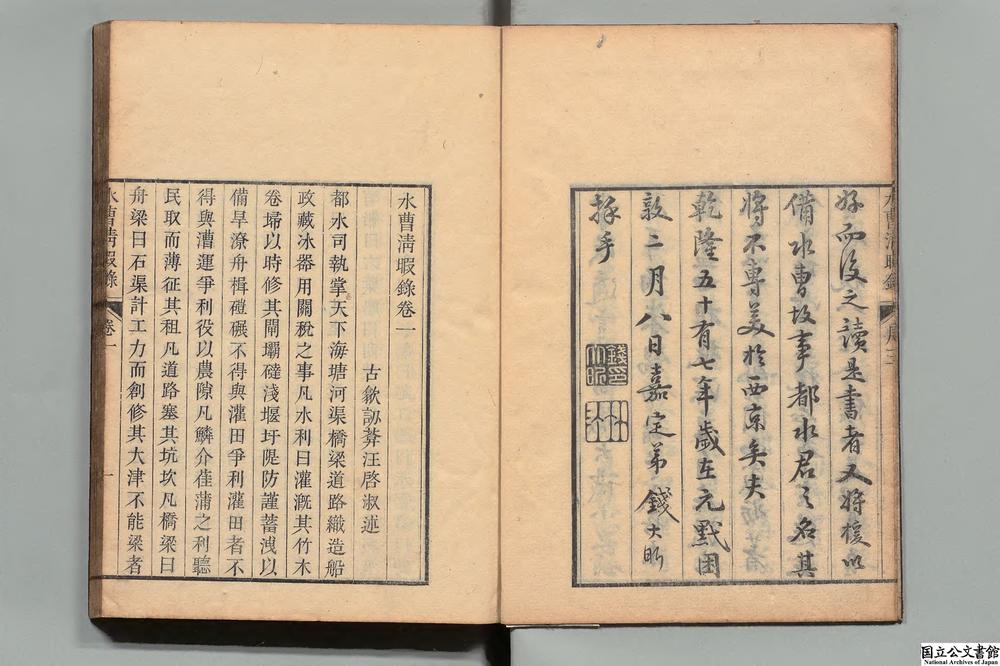 好而後之讀是書者又將援以
備水曹故事都水君之名其
將不專美於西京矣夫
乾隆五十有七年歲在元黓困
敦二月八日嘉定弟錢大昕
拜手
錢印大昕
水曹清暇錄
水曹清暇錄卷一
古歙訒葊汪啓淑述
都水司執掌天下海塘河渠橋梁道路織造船
政藏冰器用關稅之事凡水利曰灌漑其竹木
卷埽以時修其閘壩磋淺堰圩隄防謹蓄洩以
備旱潦舟楫磑碾不得與灌田爭利灌田者不
得與漕運爭利役以農隙凡鱗介萑蒲之利聽
民取而薄征其租凡道路塞其坑坎凡橋梁曰
舟梁曰石渠計工力而創修其大津不能梁者
水曹淸暇錄
卷一
一
国立公文書館
National Archives of Japan